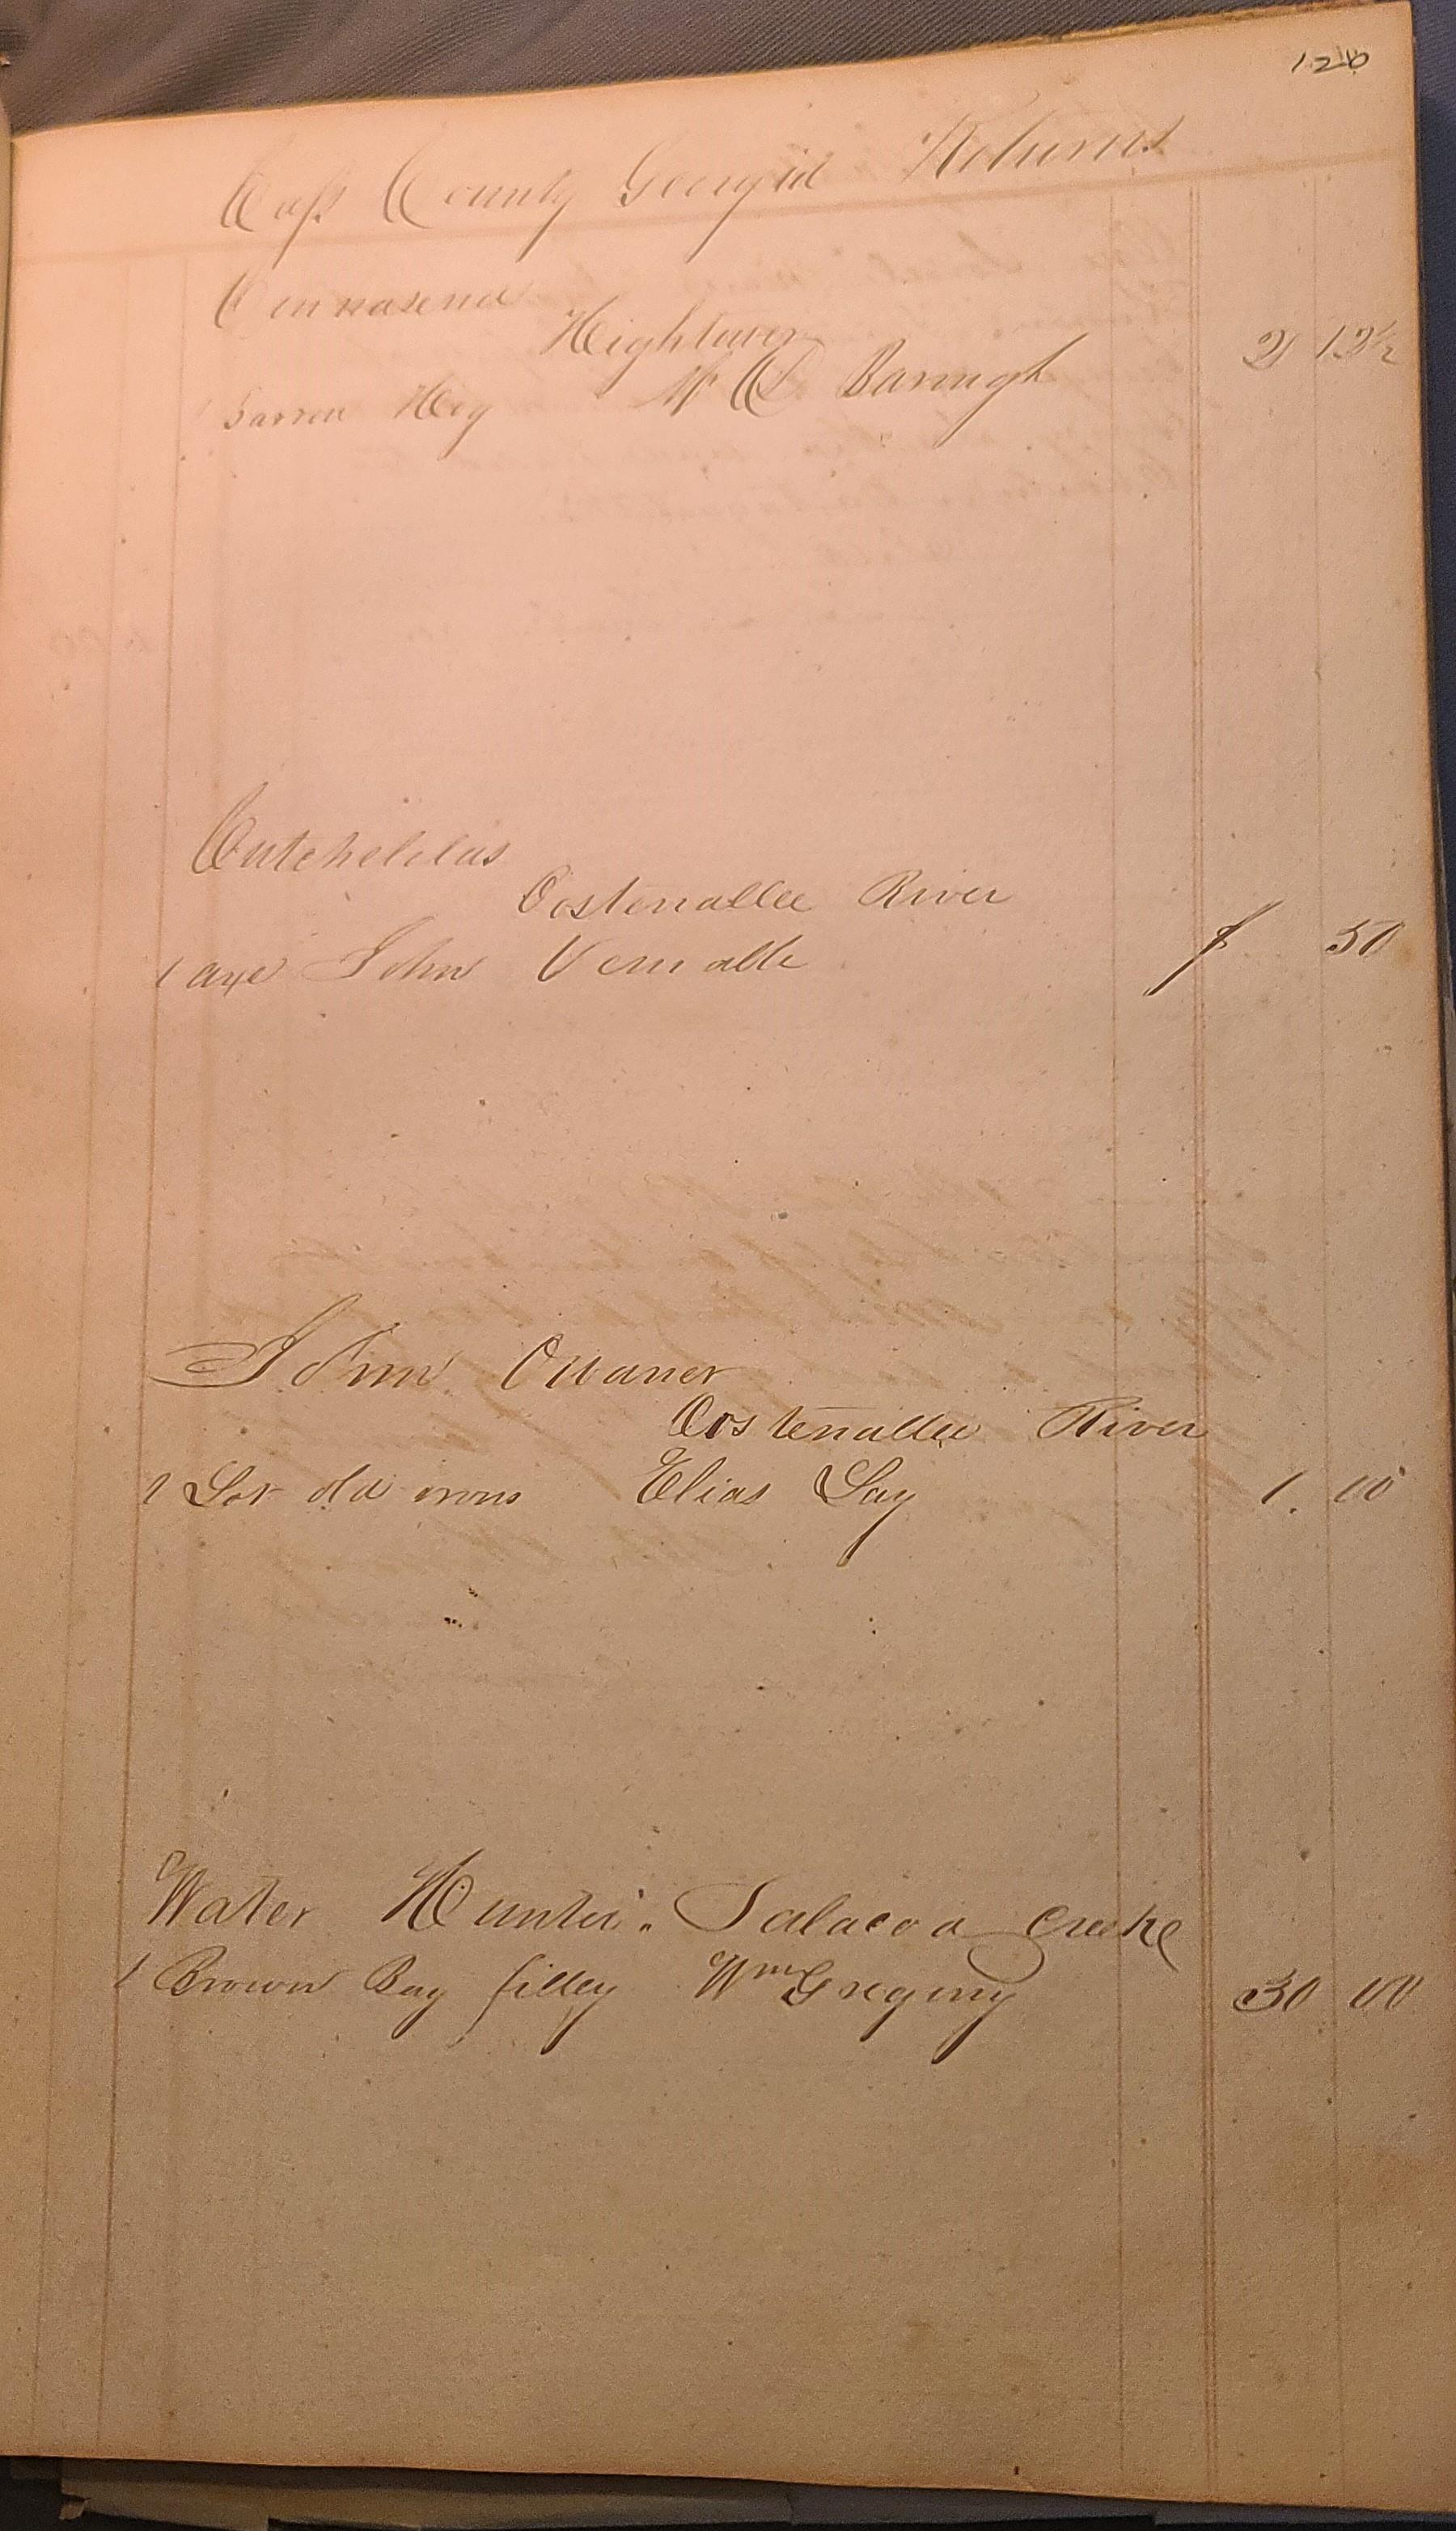 126
Cass County Georgia Returns
Hightower
1 Barrow Hog 2 12½
Cutchelelas
Oostenallee River
1 axe John 50
John
Oostenallee River
1 Lot old irons Elias Lay 1. 00
Water Hunter. Salacoa Creeke
1 Brown Bay filley Wm Gregory 30 00